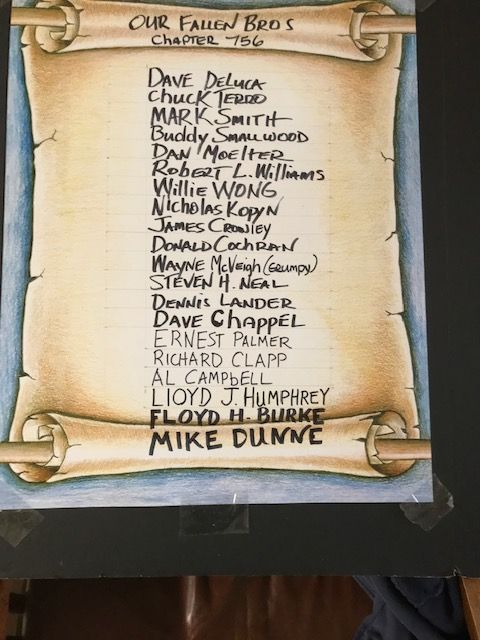 OUR FALLEN BROS
CHAPTER 756
DAVE DELUCA
CHUCK TERRO
MARK SMITH
Buddy SMALLWOOD
DAN MOELTER
RobERT L. WilliAMS
Willie WONG
NicholAS KOPYN
JAMES CROWLEY
DONALD COCHRAN
WAYNE McVEigh (GRUMPY)
STEVEN H. NEAL
DENNIS LANDER
DAVE CHAPPEL
ERNEST PALMER
RICHARD CLAPP
AL CAMPbELL
LlOYD J. HUMPHREY
FLOYD H. BURKE
MIKE DUNNE